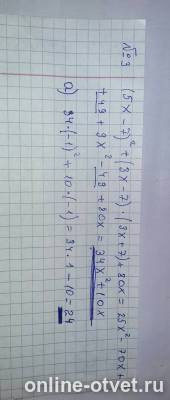 №3
(5x-7)²+(3x-7)·(3x+7)+80x=25x²-70x+
+49+9x²-49+80x=34x²+10x
а) 34·(-1)²+10·(-1)=34·1-10=24
online-otvet.ru